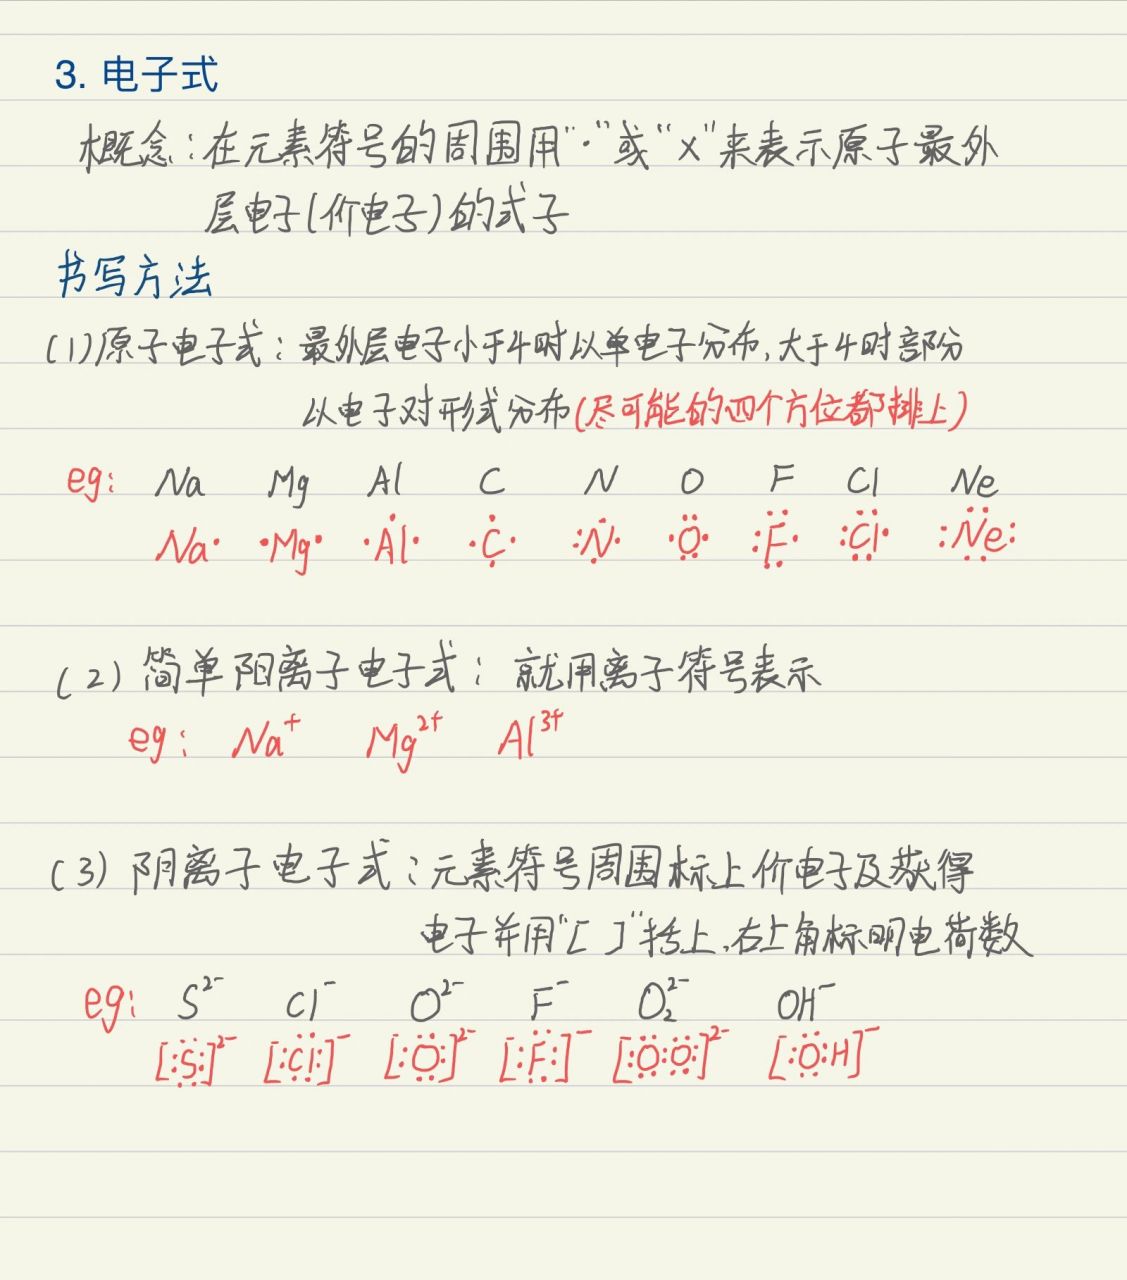 3. 电子式
概念:在元素符号的周围用"·"或"×"来表示原子最外
层电子(价电子)的式子
书写方法
(1)原子电子式:最外层电子小于4时以单电子分布,大于4时部分
以电子对形式分布(尽可能的四个方位都排上)
eg: Na Mg Al C N O F Cl Ne
Na· ·Mg· ·Al· ·C· :N· ·O· :F· :Cl· :Ne:
(2)简单阳离子电子式:就用离子符号表示
eg: Na⁺ Mg²⁺ Al³⁺
(3)阴离子电子式:元素符号周围标上价电子及获得
电子并用"[ ]"括上,右上角标明电荷数
eg: S²⁻ Cl⁻ O²⁻ F⁻ O₂²⁻ OH⁻
[:S:]²⁻ [:Cl:]⁻ [:O:]²⁻ [:F:]⁻ [:O:O:]²⁻ [:O:H]⁻